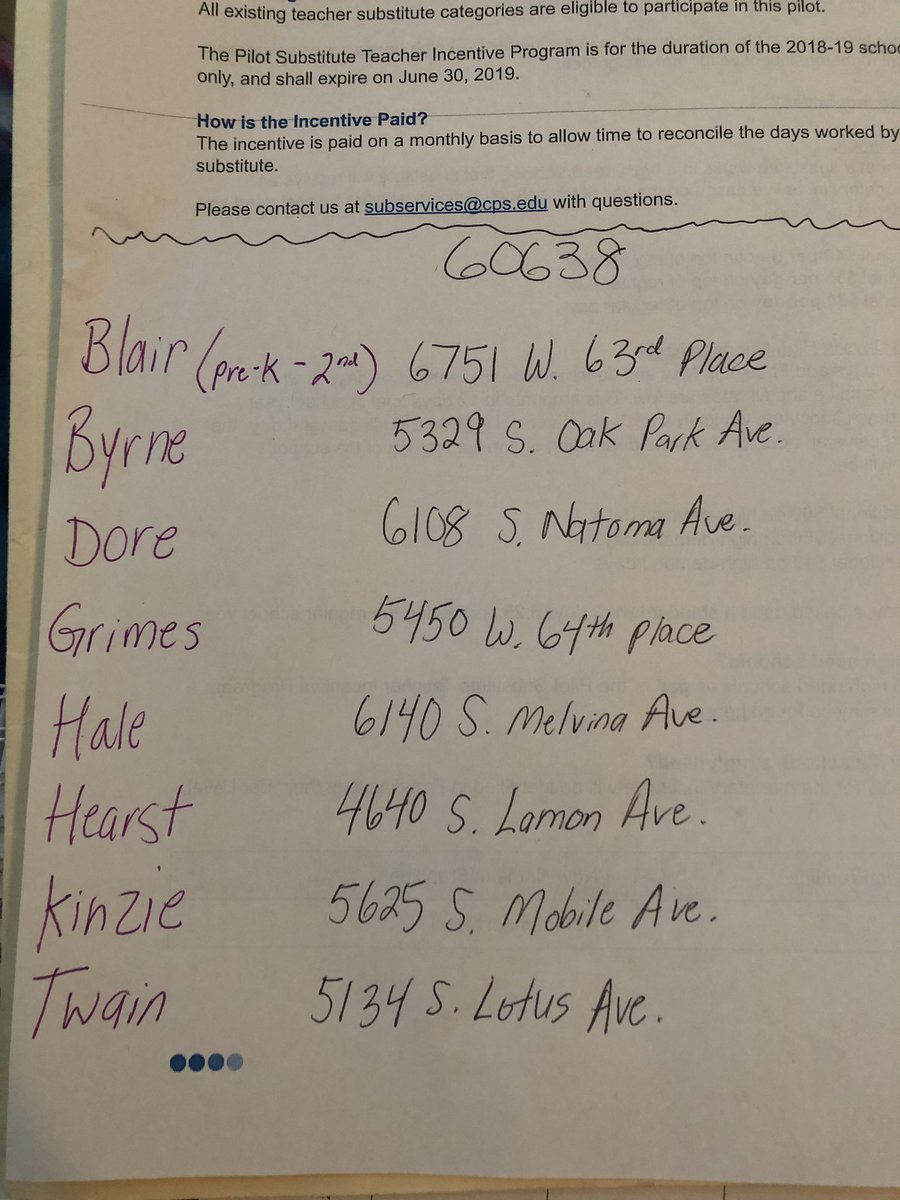 All existing teacher substitute categories are eligible to participate in this pilot.
The Pilot Substitute Teacher Incentive Program is for the duration of the 2018-19
only, and shall expire on June 30, 2019.
How is the Incentive Paid?
The incentive is paid on a monthly basis to allow time to reconcile the days worked by
substitute.
Please contact us at subservices@cps.edu with questions.
60638
Blair (pre-K - 2nd) 6751 W. 63rd Place
Byrne 5329 S. Oak Park Ave.
Dore 6108 S. Natoma Ave.
Grimes 5450 W. 64th place
Hale 6140 S. Melvina Ave.
Hearst 4640 S. Lamon Ave.
Kinzie 5625 S. Mobile Ave.
Twain 5134 S. Lotus Ave.